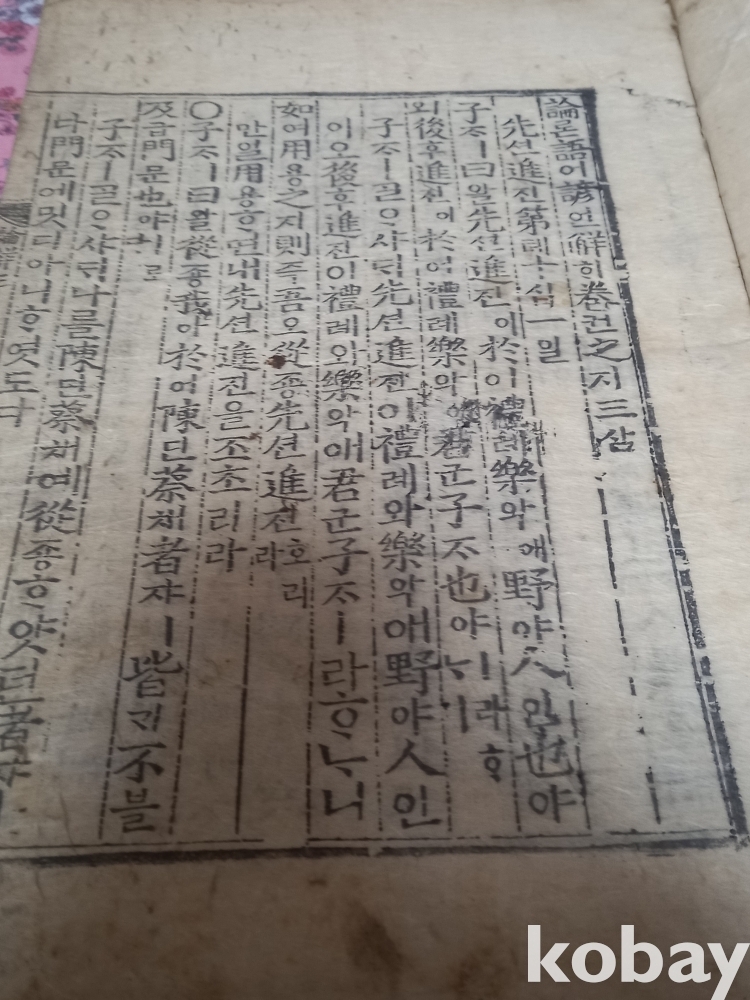 論론語어諺언解ᄒᆡ卷권之지三삼
先션進진第뎨十십一일
子ᄌᆞㅣ曰왈先션進진이於어禮례樂악애野야人인也야
외後후進진이於어禮례樂악애君군子ᄌᆞ也야ㅣ라ᄒᆞᄂᆞ니
子ᄌᆞㅣᄀᆞᆯᄋᆞ샤ᄃᆡ先션進진이禮례와樂악애野야人인
이오後후進진이禮례와樂악애君군子ᄌᆞㅣ라ᄒᆞᄂᆞ니
如여用용之지則즉吾오從죵先션進진호리라
만일用용ᄒᆞ면내先션進진을조초리라
○子ᄌᆞㅣ曰왈從죵我아於어陳딘蔡채者쟈ㅣ皆ᄀᆡ不블
及급門문也야ㅣ로
子ᄌᆞㅣᄀᆞᆯᄋᆞ샤ᄃᆡ나를陳딘蔡채예從죵ᄒᆞ얏던者쟈
다門문에밋디아니ᄒᆞ엿도다
kobay